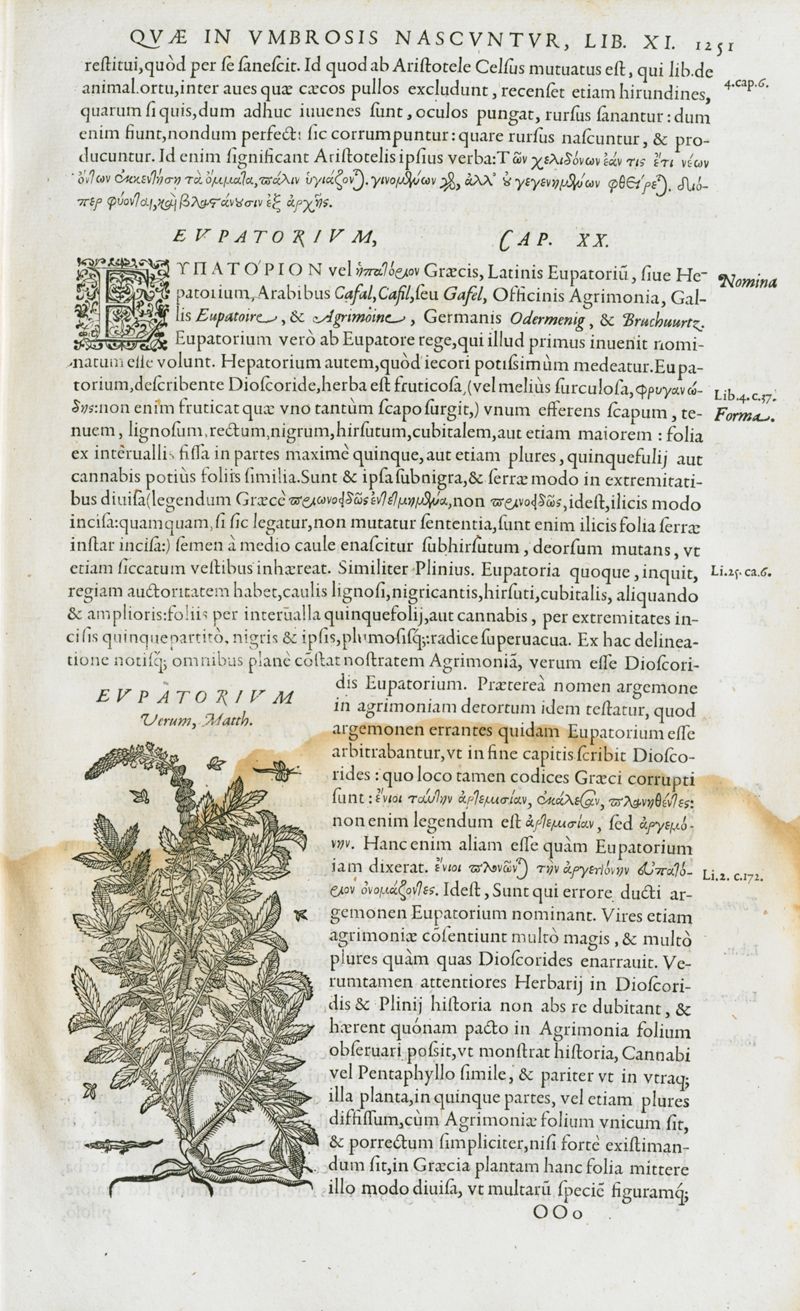 QVÆ IN VMBROSIS NASCVNTVR, LIB. XI. 1251
reſtitui,quòd per ſe ſaneſcit. Id quod ab Ariſtotele Celſus mutuatus eſt, qui lib.de
animal.ortu,inter aues quæ cæcos pullos excludunt, recenſet etiam hirundines,
4.cap.6.
quarum ſi quis,dum adhuc iuuenes ſunt, oculos pungat, rurſus ſanantur: dum
enim fiunt,nondum perfecti ſic corrumpuntur: quare rurſus naſcuntur, & pro-
ducuntur. Id enim ſignificant Ariſtotelis ipſius verba:Τῶν χελιδόνων ἐάν τις ἔτι νέων
ὄντων ἐκκεντήση τὰ ὄμματα,πάλιν ὑγιάζον). γινομένων γὸ, ἀλλ' ὀ γεγενημένων φθείρε). διό-
περ φύονται,καὶ βλαστάνυσιν ἐξ ἀρχῆς.
EVPATORIVM, CAP. XX.
ΕΥΠΑΤΟΡΙΟΝ vel ἡπατόριον Græcis, Latinis Eupatoriū, ſiue He-
Nomina
patorium, Arabibus Cafal,Cafil,ſeu Gafel, Officinis Agrimonia, Gal-
lis Eupatoire, & Agrimoine, Germanis Odermenig, & Bruchuurtz.
Eupatorium verò ab Eupatore rege,qui illud primus inuenit nomi-
natum eſſe volunt. Hepatorium autem,quòd iecori potiſſimùm medeatur.Eupa-
torium,deſcribente Dioſcoride,herba eſt fruticoſa,(vel meliùs ſurculoſa,φρυγανώ-
Lib.4.c.37.
δης:non enim fruticat quæ vno tantùm ſcapo ſurgit,) vnum efferens ſcapum, te-
Forma.
nuem, lignoſum,rectum,nigrum,hirſutum,cubitalem,aut etiam maiorem: folia
ex interuallis fiſſa in partes maximè quinque,aut etiam plures, quinquefolij aut
cannabis potiùs foliis ſimilia.Sunt & ipſa ſubnigra,& ſerræ modo in extremitati-
bus diuiſa(legendum Græcè πριονοειδῶς ἐντετμημένα,non πρινοειδῶς,ideſt,ilicis modo
inciſa:quamquam,ſi ſic legatur,non mutatur ſententia,ſunt enim ilicis folia ſerræ
inſtar inciſa:) ſemen à medio caule enaſcitur ſubhirſutum, deorſum mutans, vt
etiam ſiccatum veſtibus inhæreat. Similiter Plinius. Eupatoria quoque, inquit,
Li.25.ca.6.
regiam auctoritatem habet,caulis lignoſi,nigricantis,hirſuti,cubitalis, aliquando
& amplioris:foliis per interualla quinquefolij,aut cannabis, per extremitates in-
ciſis quinquepartitò, nigris & ipſis,plumoſiſq;:radice ſuperuacua. Ex hac delinea-
tione notiſq; omnibus planè cōſtat noſtratem Agrimoniā, verum eſſe Dioſcori-
dis Eupatorium. Prætereà nomen argemone
in agrimoniam detortum idem teſtatur, quod
argemonen errantes quidam Eupatorium eſſe
arbitrabantur,vt in fine capitis ſcribit Dioſco-
rides: quo loco tamen codices Græci corrupti
ſunt: ἔνιοι ταύτην ἀρτεμισίαν, ἐκάλεσαν, πλανηθέντες:
non enim legendum eſt ἀρτεμισίαν, ſed ἀργεμό-
νην. Hanc enim aliam eſſe quàm Eupatorium
iam dixerat. ἔνιοι πλανῶν) τὴν ἀργεμόνην εὐπατό-
Li.2. c.172.
ριον ὀνομάζοντες. Ideſt, Sunt qui errore ducti ar-
gemonen Eupatorium nominant. Vires etiam
agrimoniæ cōſentiunt multò magis, & multò
plures quàm quas Dioſcorides enarrauit. Ve-
rumtamen attentiores Herbarij in Dioſcori-
dis & Plinij hiſtoria non abs re dubitant, &
hærent quónam pacto in Agrimonia folium
obſeruari poſsit,vt monſtrat hiſtoria, Cannabi
vel Pentaphyllo ſimile, & pariter vt in vtraq;
illa planta,in quinque partes, vel etiam plures
diffiſſum,cùm Agrimoniæ folium vnicum ſit,
& porrectum ſimpliciter,niſi fortè exiſtiman-
dum ſit,in Græcia plantam hanc folia mittere
illo modo diuiſa, vt multarū ſpeciē figuramq́;
EVPATORIVM
Verum, Matth.
OOo